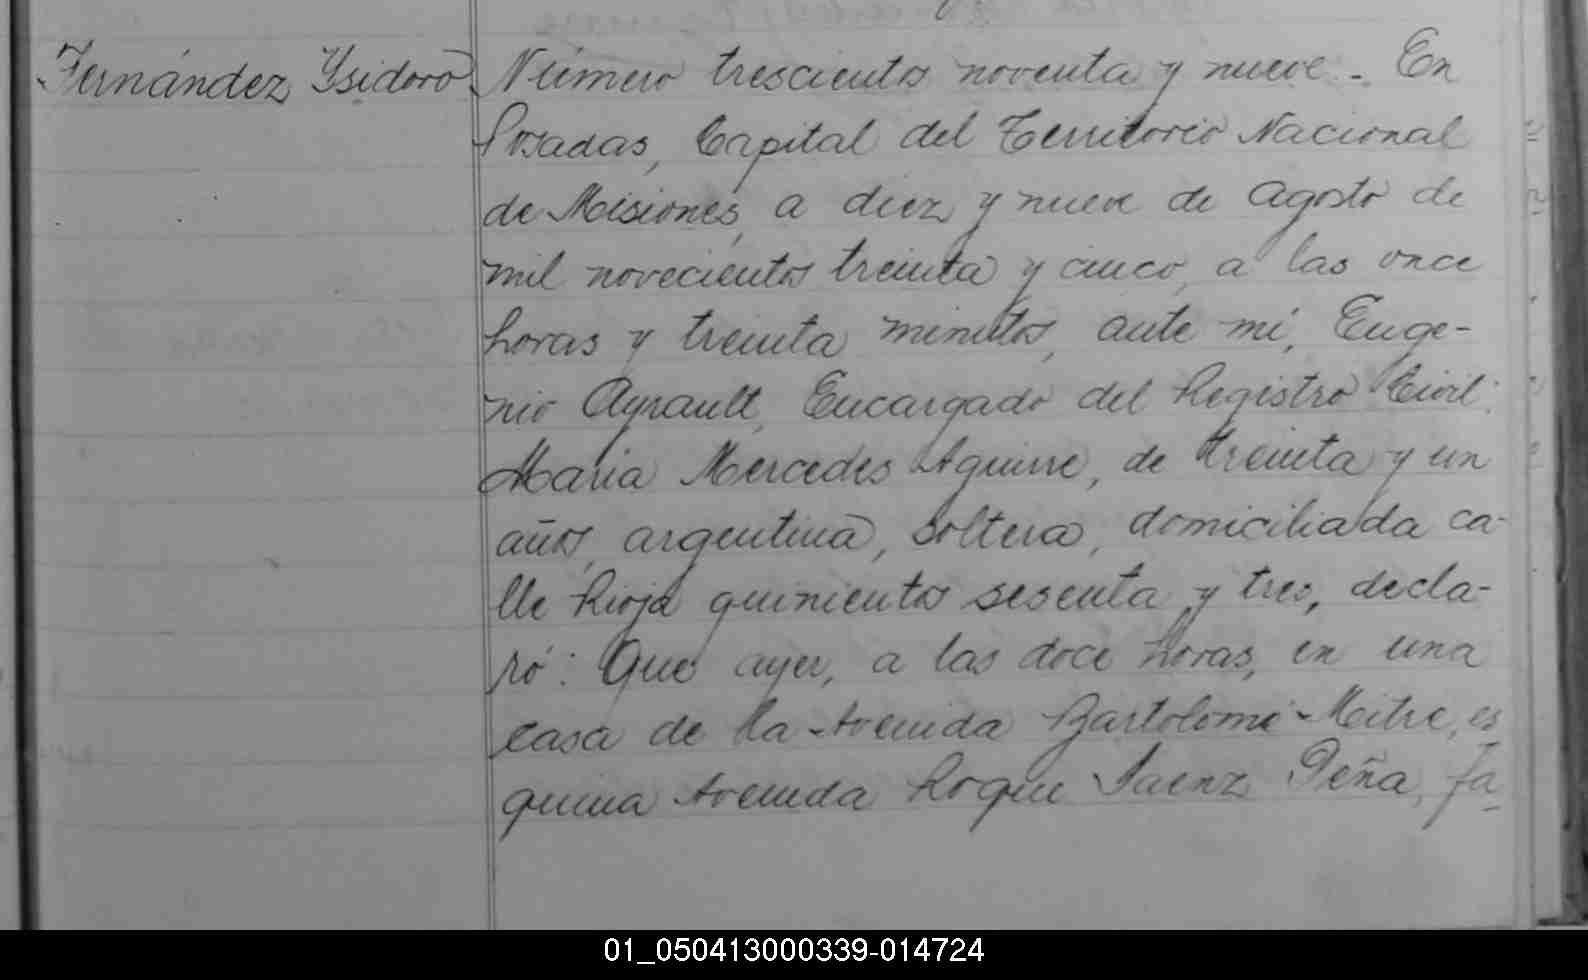 Fernández Ysidoro
Número trescientos noventa y nueve. En
Posadas, Capital del Territorio Nacional
de Misiones, a diez y nueve de Agosto de
mil novecientos treinta y cinco, a las once
horas y treinta minutos, ante mí, Euge-
nio Ayrault, Encargado del Registro Civil:
Maria Mercedes Aguirre, de treinta y un
años, argentina, soltera, domiciliada ca-
lle Rioja quinientos sesenta y tres, decla-
ró: Que ayer, a las doce horas, en una
casa de la Avenida Bartolomé Mitre, es-
quina Avenida Roque Saenz Peña, fa-
01_050413000339-014724